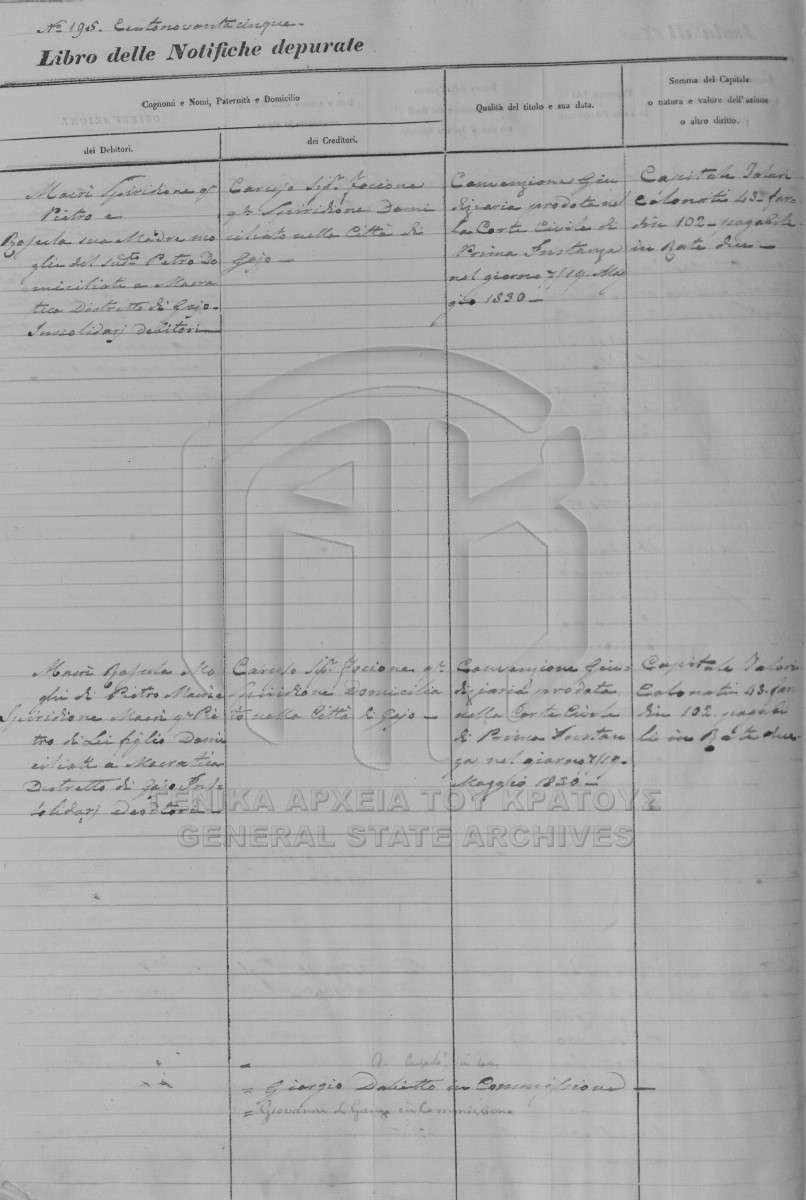 No. 195. Centonovantacinque.
Libro delle Notifiche depurate
Cognomi e Nomi, Paternità e Domicilio
dei Debitori.
dei Creditori.
Qualità del titolo e sua data.
Somma del Capitale
o natura e valore dell'azione
o altro diritto.
Macrì Spiridione qm
Pietro e
sua Madre mo
glie del sudo. Pietro Do
miciliati a Macra
tica Distretto di Gajo
Insolidarj debitori
Caruso Sigr. Focione
qm. Spiridione Domi
ciliato nella Città di
Gajo
Convenzione Giu
diziaria prodota nel
la Corte Civile di
Prima Instanza
nel giorno 7/19. Mag
gio 1830
Capitale Talari
Colonati 43. far
din 102 pagabile
in Rate due
Macrì Mo
glie di Pietro Macrì e
Spiridione Macrì qm Pie
tro di Lei figlio Domi
ciliati a Macratica
Distretto di Gajo In
solidarj debitori
Caruso Sigr. Focione qm.
Spiridione Domicilia
to nella Città di Gajo
Convenzione Giu
diziaria prodata
nella Corte Civile
di Prima Instan
za nel giorno 7/19.
Maggio 1830
Capitale Talari
Colonati 43. far
din 102 pagabi
li in Rate due
ΓΕΝΙΚΑ ΑΡΧΕΙΑ ΤΟΥ ΚΡΑΤΟΥΣ
GENERAL STATE ARCHIVES
= Giorgio in Commissione
= Giovanni in Commissione